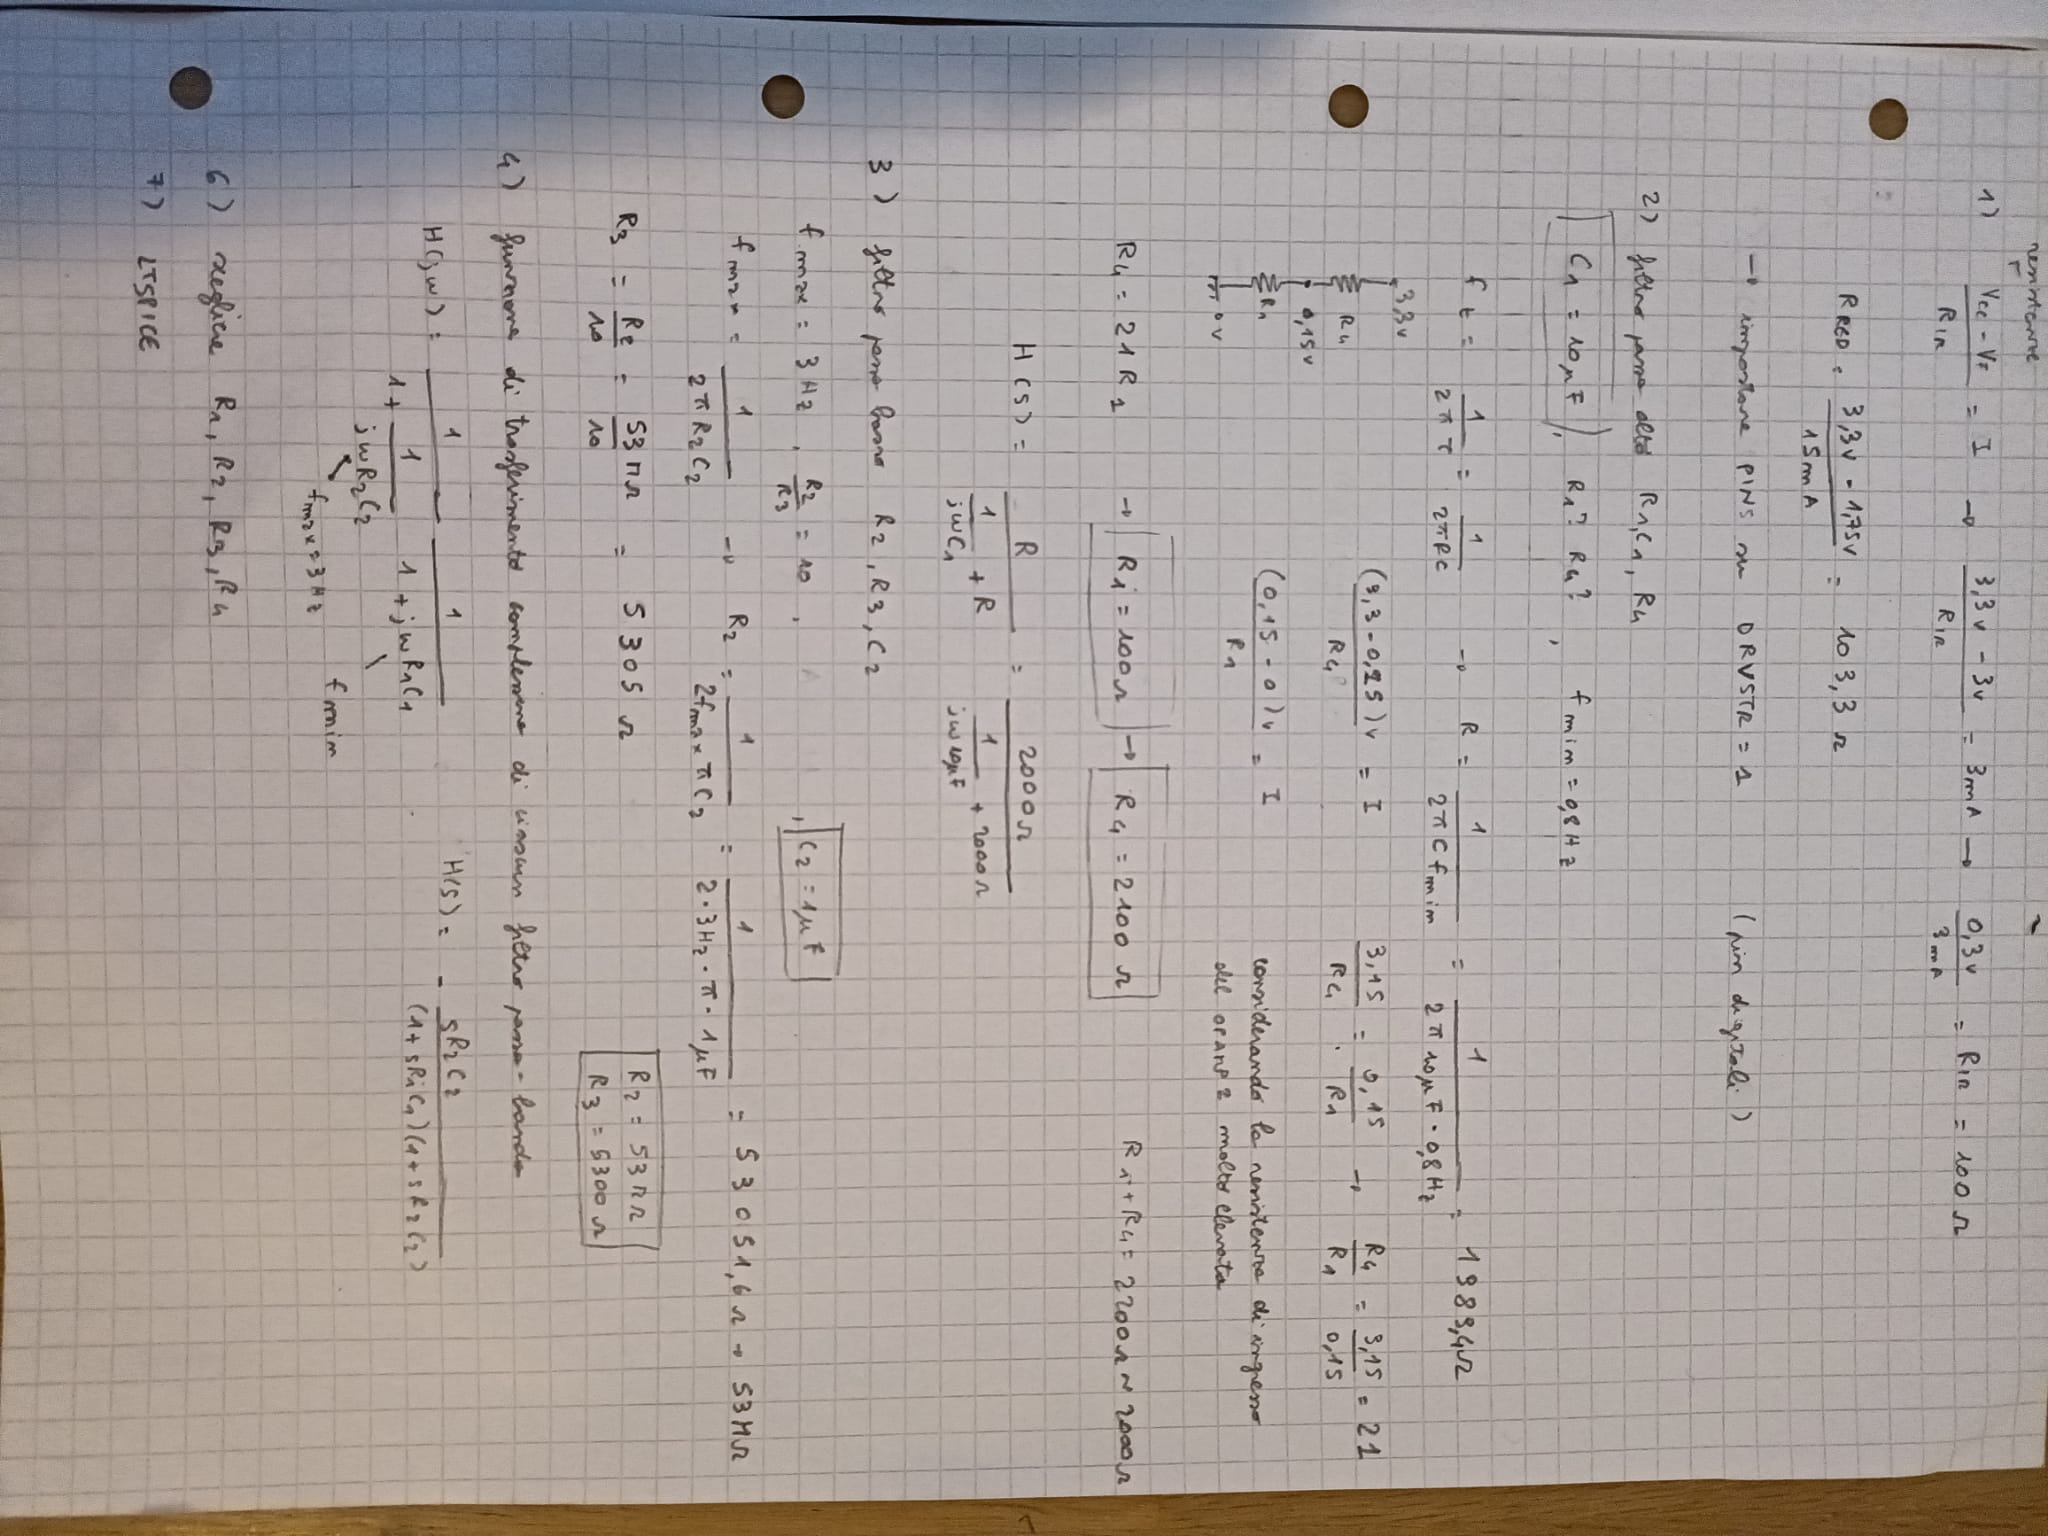 resistenze
1) (Vcc - VF) / RIR = I → (3,3v - 3v) / RIR = 3mA → 0,3v / 3mA = RIR = 100 Ω
RRED = (3,3v - 1,75v) / 15mA = 103,3 Ω
→ impostare PINS su DRVSTR = 1 (pin digitali)
2) filtro passa alto R1, C1, R4
C1 = 10μF, R1? R4?, f min = 0,8Hz
f t = 1 / 2πτ = 1 / 2πRC → R = 1 / 2πC fmin = 1 / 2π 10μF · 0,8Hz = 1989,4Ω
3,3v
R4
0,15v
R1
0v
(3,3 - 0,15)v / R4 = I 3,15 / R4 = 0,15 / R1 → R4 / R1 = 3,15 / 0,15 = 21
(0,15 - 0)v / R1 = I
considerando la resistenza di ingresso
del OPAMP 2 molto elevata
R4 = 21 R1 → R1 = 100Ω → R4 = 2100 Ω R1 + R4 = 2200Ω ~ 2000Ω
H(s) = R / (1 / jωC1 + R) = 2000Ω / (1 / jω10μF + 2000Ω)
3) filtro passa basso R2, R3, C2
f max = 3 Hz, R2 / R3 = 10, , C2 = 1μF
f max = 1 / 2πR2C2 → R2 = 1 / 2fmaxπC2 = 1 / 2·3Hz·π·1μF = 53051,6Ω → 53MΩ
R3 = R2 / 10 = 53MΩ / 10 = 5305 Ω
R2 = 53MΩ
R3 = 5300 Ω
4) funzione di trasferimento complessiva di ciascun filtro passa-banda
H(jω) = 1 / (1 + 1 / jωR2C2) 1 / (1 + jωR1C1) H(s) = - sR2C2 / (1 + sR1C1)(1 + sR2C2)
fmax = 3Hz
fmin
6) scegliere R1, R2, R3, R4
7) LTSPICE